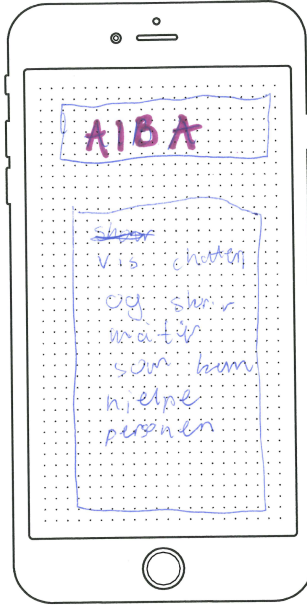 AIBA
vis chatten
og skriv
måtir
som kan
hjelpe
personen